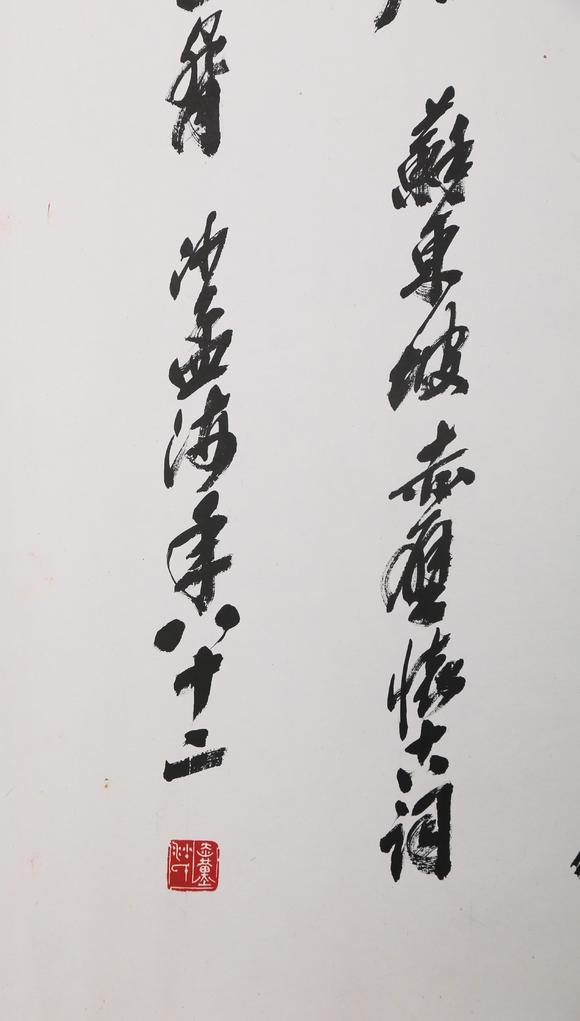 蘇東坡赤壁懷古詞
沙孟海年八十二